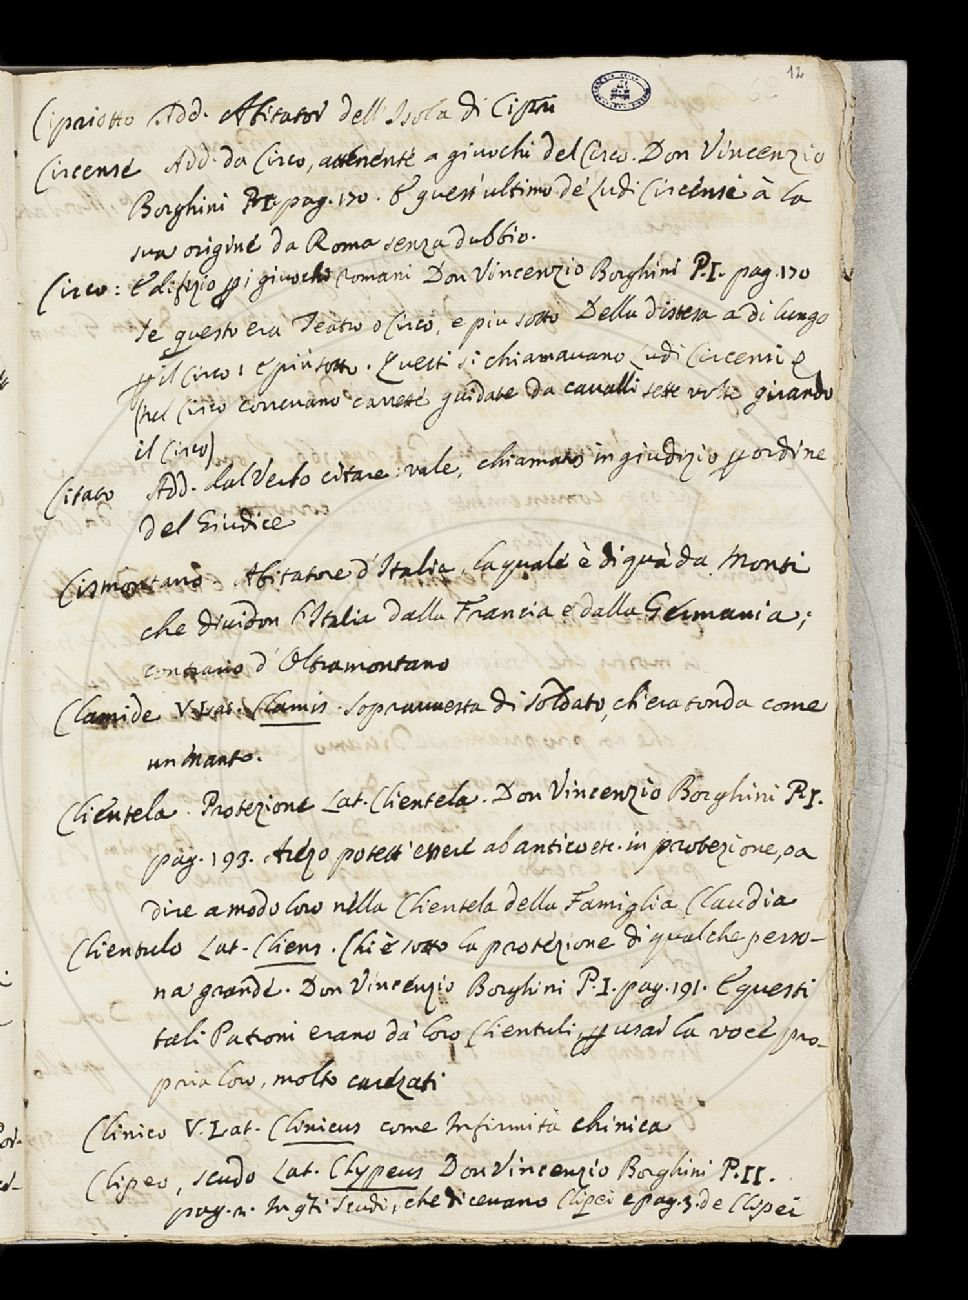 12
Cipriotto Add. Abitator dell'Isola di Cipri
Circense Add. da Circo, attenente a giuochi del Circo. Don Vincenzio
Borghini P.I. pag. 170. E quest'ultimo de' Ludi Circensi à la
sua origine da Roma senza dubbio.
Circo: Edifizio p i giuochi Romani Don Vincenzio Borghini P.I. pag. 170
Se questo era Teatro o Circo, e piu sotto Della distesa a di lungo
p il Circo: E più sotto. Questi si chiamavano Ludi Circensi e
(nel Circo correvano carrette guidate da cavalli sette volte girando
il Circo)
Citato Add. dal Verbo citare: vale, chiamato in giudizio p ordine
del Giudice
Cismontano. Abitatore d'Italia, la quale è di quà da Monti
che dividon l'Italia dalla Francia e dalla Germania;
contrario d'Oltramontano
Clamide V. Lat. Clamis. Sopravvesta di Soldato, ch'era tonda come
un Manto.
Clientela. Protezione Lat. Clientela. Don Vincenzio Borghini P.I.
pag. 193. Arezo potett'essere ab antico etc. in protezione, o a
dire a modo loro nella Clientela della Famiglia Claudia
Clientulo Lat. Cliens. Chi è sotto la protezione di qualche perso-
na grande. Don Vincenzio Borghini P.I. pag. 191. E questi
tali Patroni erano da loro Clientuli, p usar la voce pro-
pria loro, molto carezati
Clinico V. Lat. Clinicus come Infirmità clinica
Clipeo, scudo Lat. Clypeus Don Vincenzio Borghini P.II.
pag. 2. In qti Scudi, che dicevano Clipei e pag. 3. de Clipei